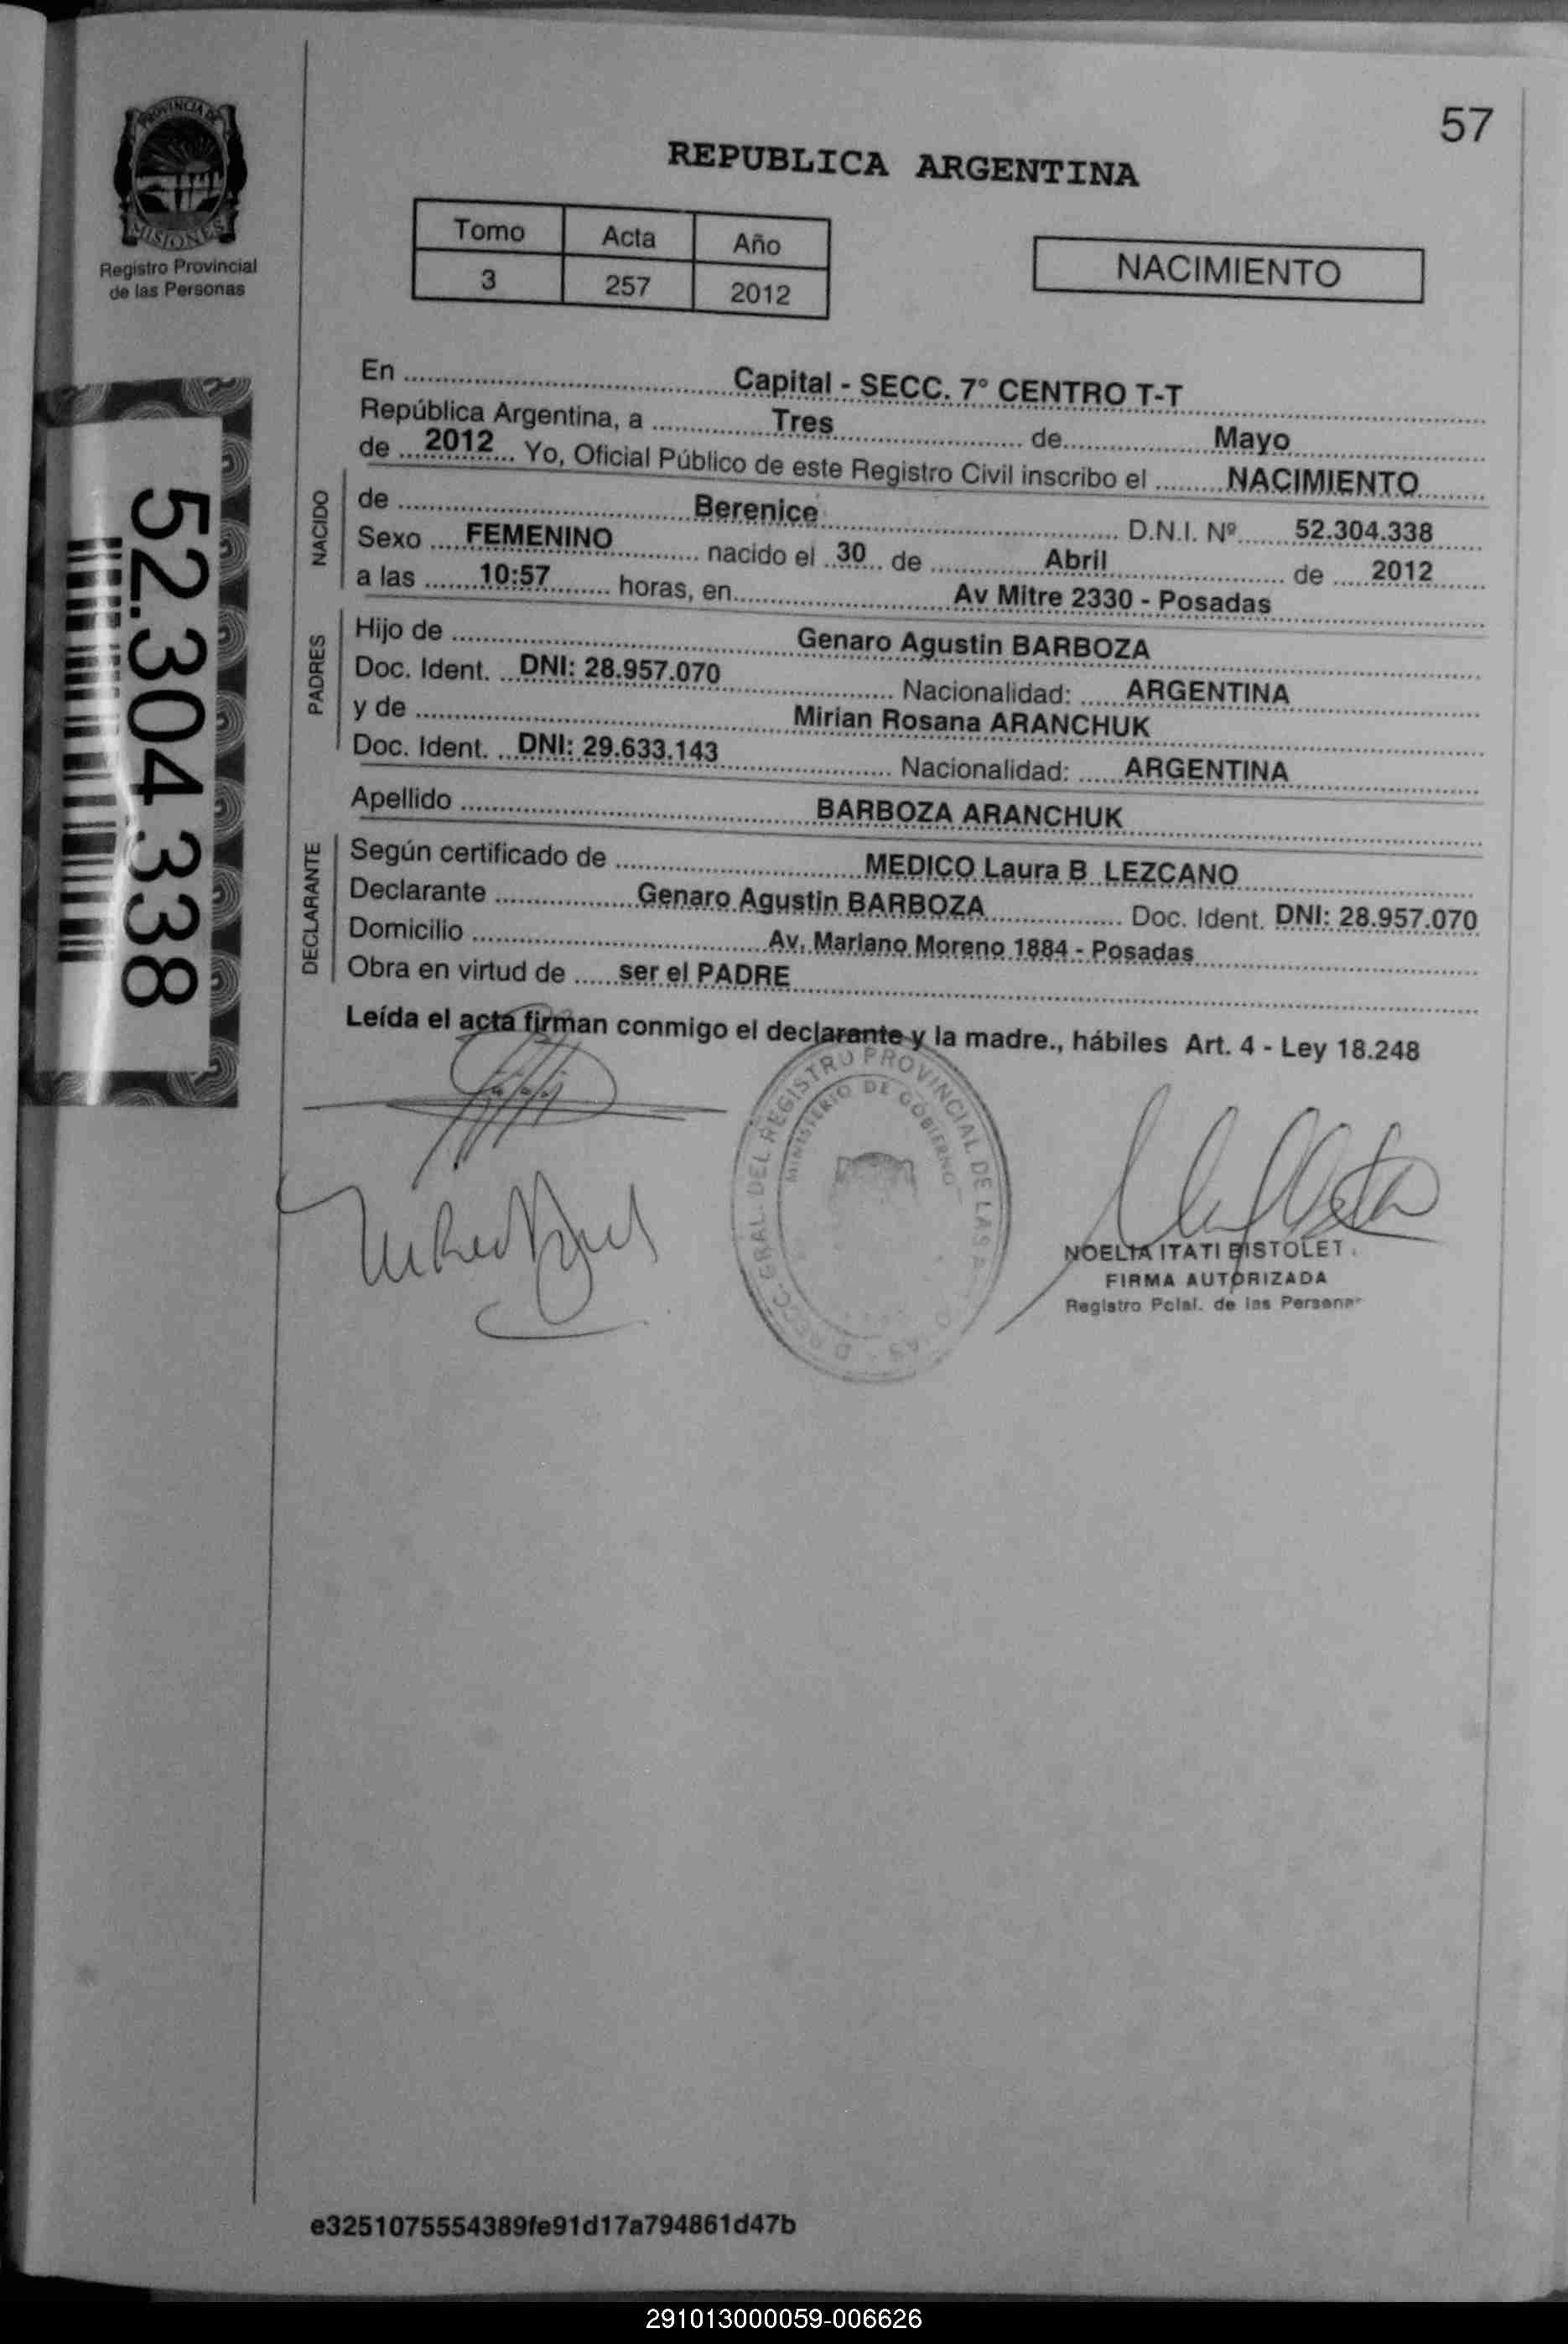 57
PROVINCIA DE
MISIONES
Registro Provincial
de las Personas
REPUBLICA ARGENTINA
Tomo Acta Año
3 257 2012
NACIMIENTO
52.304.338
En Capital - SECC. 7° CENTRO T-T
República Argentina, a Tres de Mayo
de 2012 Yo, Oficial Público de este Registro Civil inscribo el NACIMIENTO
NACIDO
de Berenice D.N.I. Nº 52.304.338
Sexo FEMENINO nacido el 30 de Abril de 2012
a las 10:57 horas, en Av Mitre 2330 - Posadas
PADRES
Hijo de Genaro Agustin BARBOZA
Doc. Ident. DNI: 28.957.070 Nacionalidad: ARGENTINA
y de Mirian Rosana ARANCHUK
Doc. Ident. DNI: 29.633.143 Nacionalidad: ARGENTINA
Apellido BARBOZA ARANCHUK
DECLARANTE
Según certificado de MEDICO Laura B LEZCANO
Declarante Genaro Agustin BARBOZA Doc. Ident. DNI: 28.957.070
Domicilio Av. Mariano Moreno 1884 - Posadas
Obra en virtud de ser el PADRE
Leída el acta firman conmigo el declarante y la madre., hábiles Art. 4 - Ley 18.248
GRAL. DEL REGISTRO PROVINCIAL DE LAS
MINISTERIO DE GOBIERNO
NOELIA ITATI BISTOLET
FIRMA AUTORIZADA
Registro Pcial. de las Personas
e3251075554389fe91d17a794861d47b
291013000059-006626